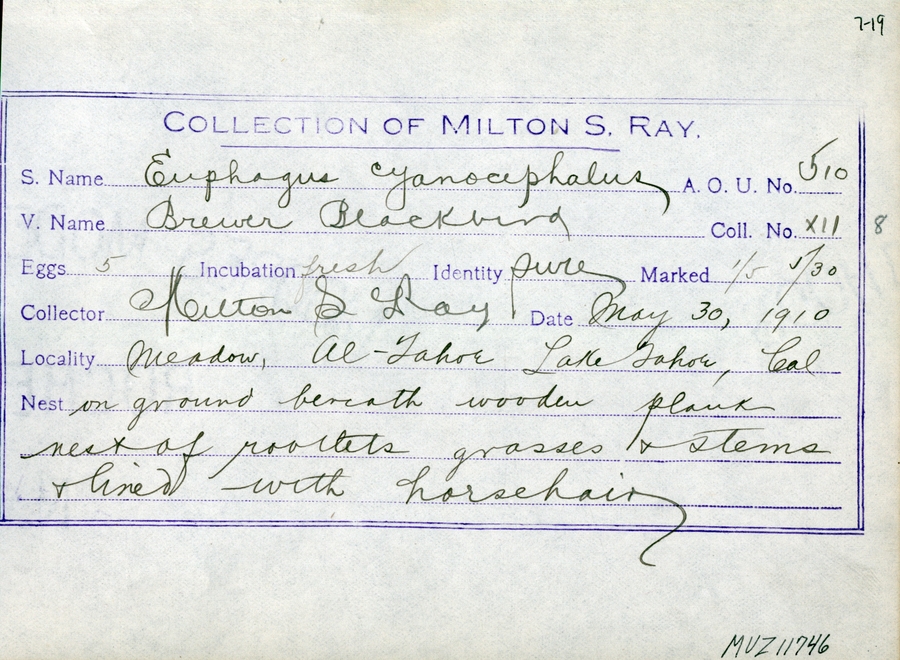 7-19
COLLECTION OF MILTON S. RAY.
S. Name Euphagus cyanocephalus A. O. U. No. 510
V. Name Brewer Blackbird Coll. No. XII 8
Eggs 5 Incubation fresh Identity sure Marked 1/5 5/30
Collector Milton S Ray Date May 30, 1910
Locality Meadow, Al-Tahoe Lake Tahoe, Cal
Nest on ground beneath wooden plank
nest of rootlets grasses & stems
& lined with horsehair
MVZ 11746